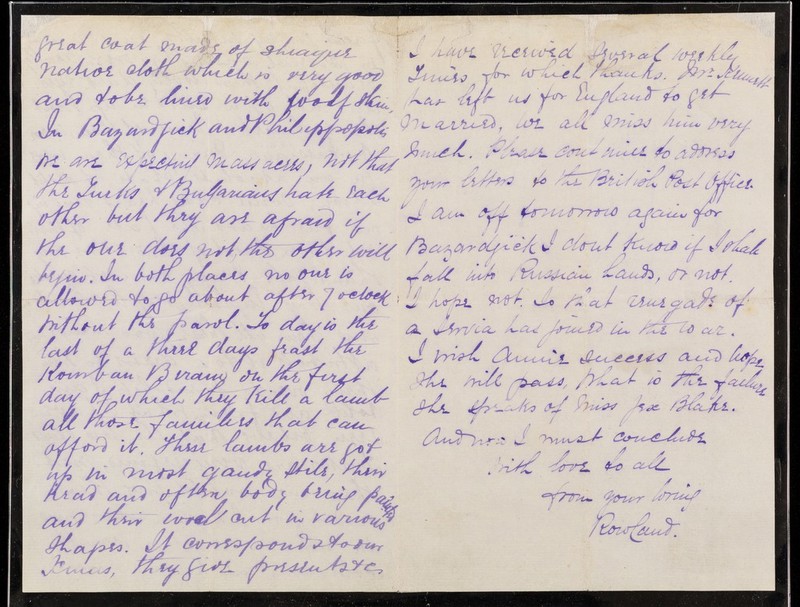 great coat made of shiaque
native cloth which is very good
and to be lined with woolf skin.
In Bazardjick and Philippopolis
we are expectin massacres, not that
the Turks & Bulgarians hate each
other but they are afraid if
the one does not, the other will
begin. In both places no one is
allowed to go about after 7 oclock
without the parol. To day is the
last of a three days feast the
Kourban Biram on the first
day of which they kill a lamb
all those families that can
afford it. These lambs are got
up in most gaudy stile, their
head and often body being painted
and their wool cut in various
shapes. It corresponds to our
Xmas, they give presents &c
I have received several weekly
Times for which thanks. Mr.
has left us for England to get
married, we all miss him very
much. Please continue to address
your letters to the British Post Office
I am off tomorrow again for
Bazardgick I dont know if I shall
fall into Russian hands, or not.
I hope not. So that renegade of
a Servia has joined in the war.
I wish Annie success and hope
she will pass. What is the failure
she speaks of Miss Jex Blake.
And now I must conclude
with love to all
from your loving
Rowland.